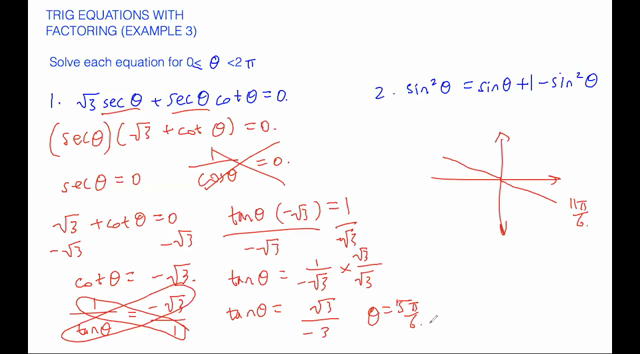 TRIG EQUATIONS WITH
FACTORING (EXAMPLE 3)
Solve each equation for 0 ≤ θ < 2π
1. √3 secθ + secθ cotθ = 0.
(secθ)(√3 + cotθ) = 0.
secθ = 0
1/cosθ = 0.
√3 + cotθ = 0
-√3 -√3
cotθ = -√3.
1/tanθ = -√3/1
tanθ(-√3) = 1
-√3 -√3
tanθ = 1/-√3 × √3/√3
tanθ = √3/-3
θ = 5π/6.
2. sin²θ = sinθ + 1 - sin²θ
11π/6.